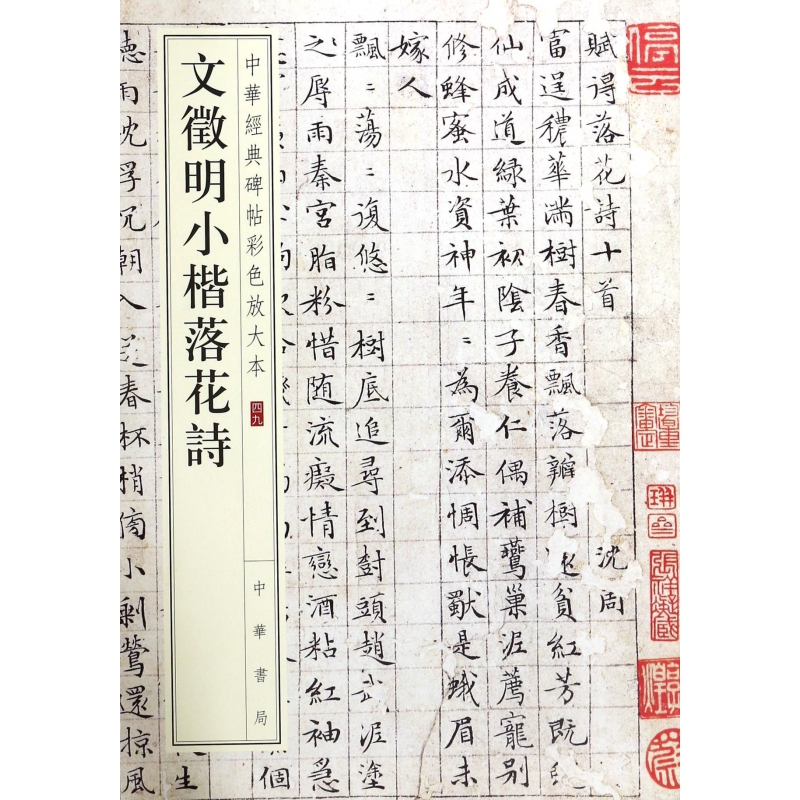 賦得落花詩十首
沈周
富逞穠華滿樹春香飄落瓣樹還貧紅芳既
仙成道綠葉初陰子養仁偶補鶯巢泥薦寵別
修蜂蜜水資神年〻為爾添惆悵是蛾眉未
嫁人
飄〻蕩〻復悠〻樹底追尋到樹頭趙武泥塗
知辱雨秦宮脂粉惜隨流癡情戀酒粘紅袖急
個
中華經典碑帖彩色放大本
四九
中華書局
文徵明小楷落花詩
生
春杯梢傍小剩鶯還掠風